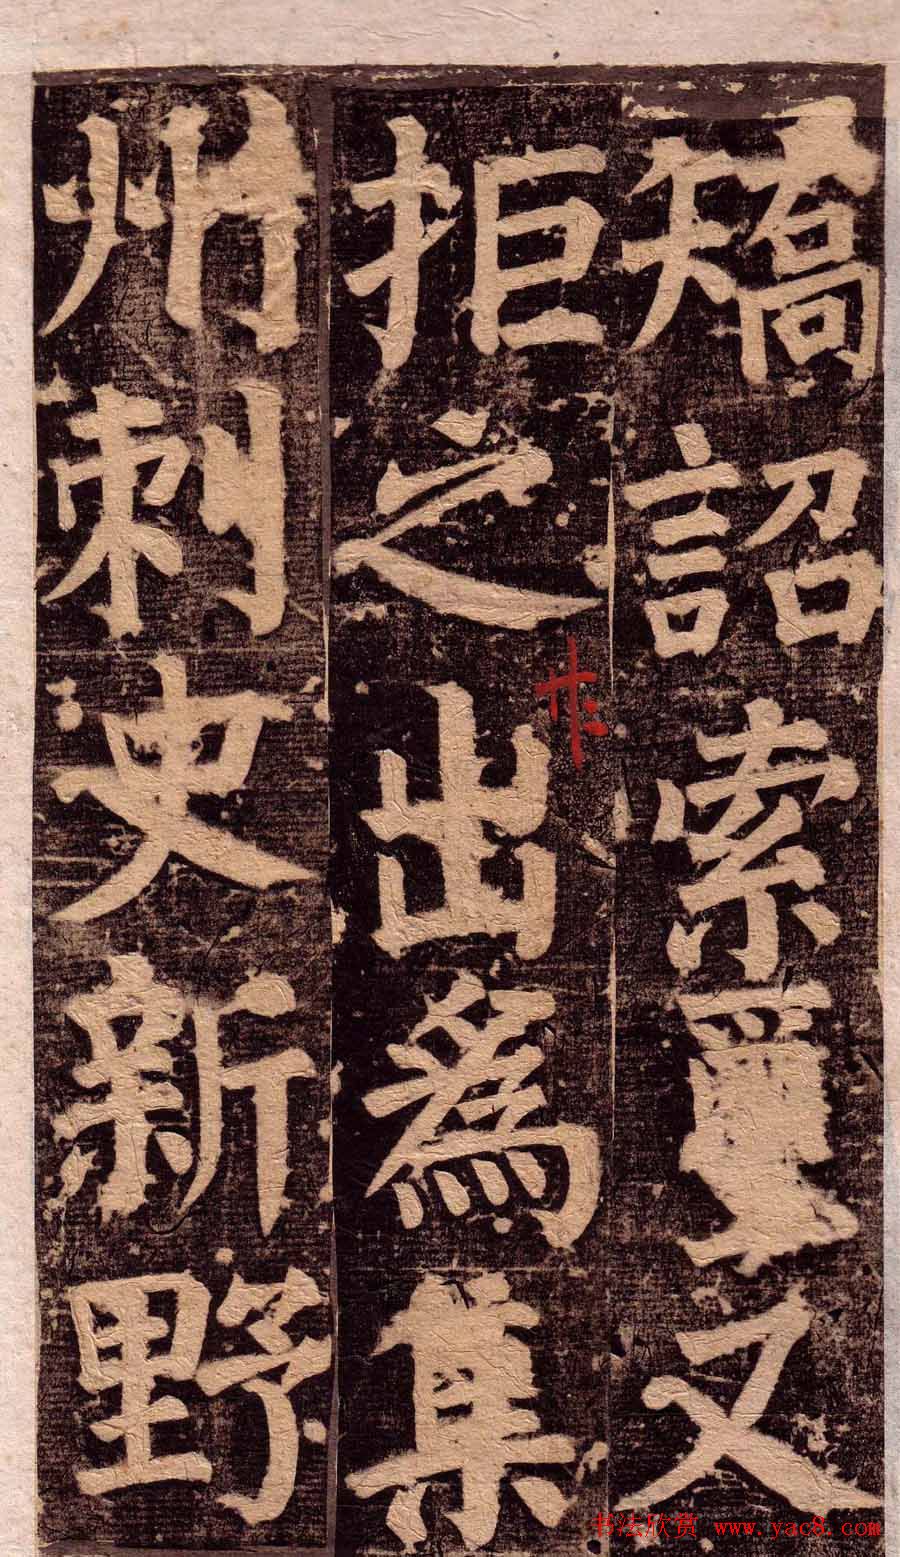 矯詔索璽又
拒之出為集
州刺史新野
书法欣赏 www.yac8.com